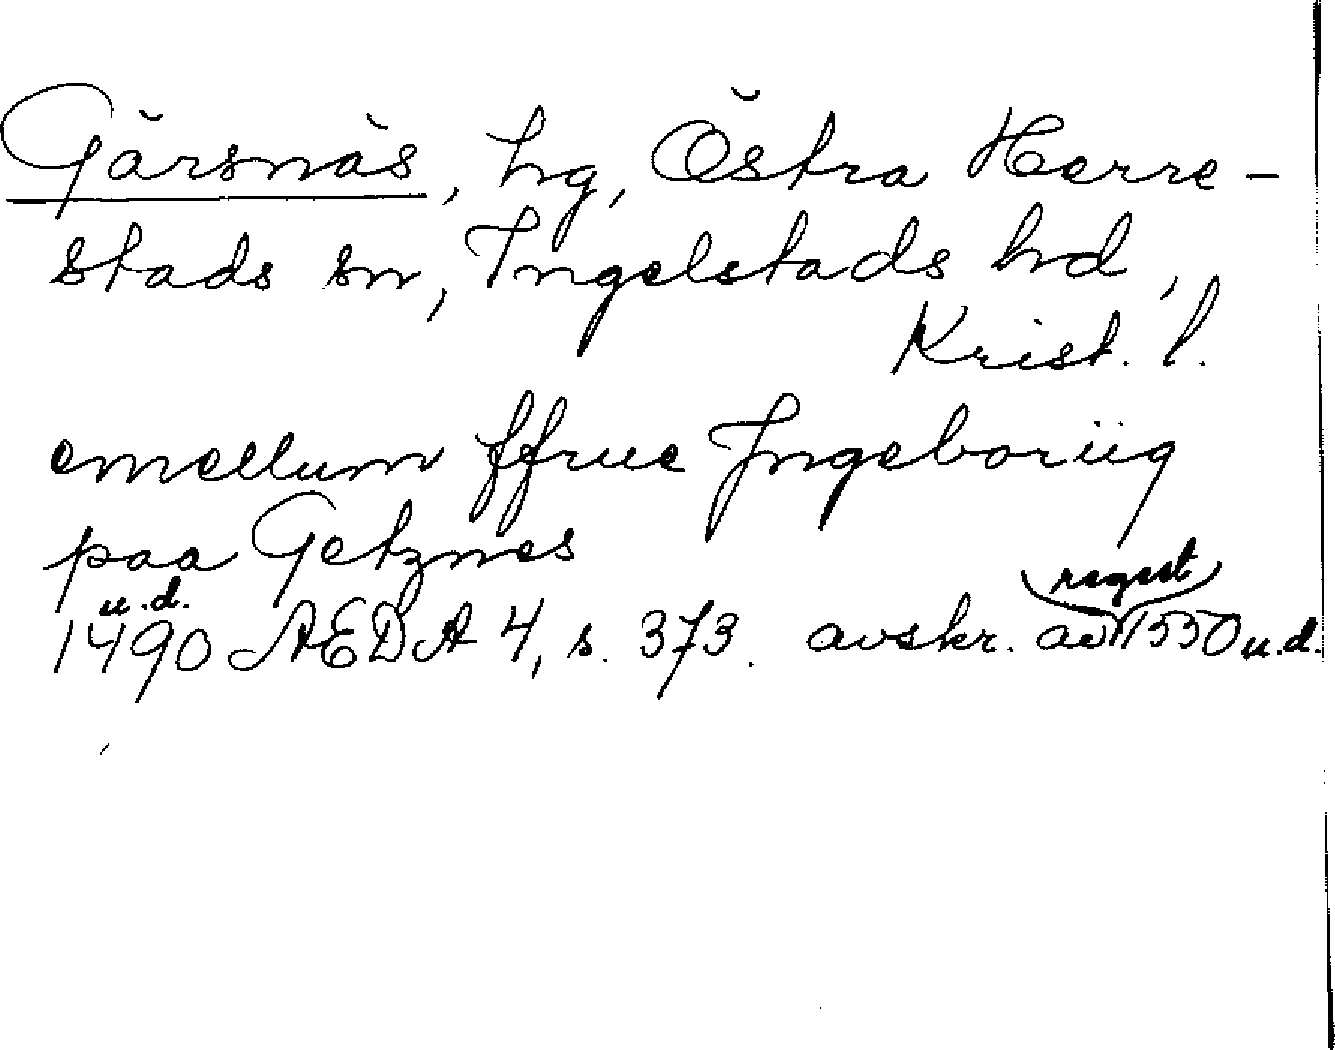 Gärsnäs, hg, Östra Herre-
stads sn, Ingelstads hd,
Krist. l.
emellum ffrue Jngeboriig
paa Getznes
u.d. regest
1490 ÆDA 4, s. 373. avskr. av 1550 u.d.